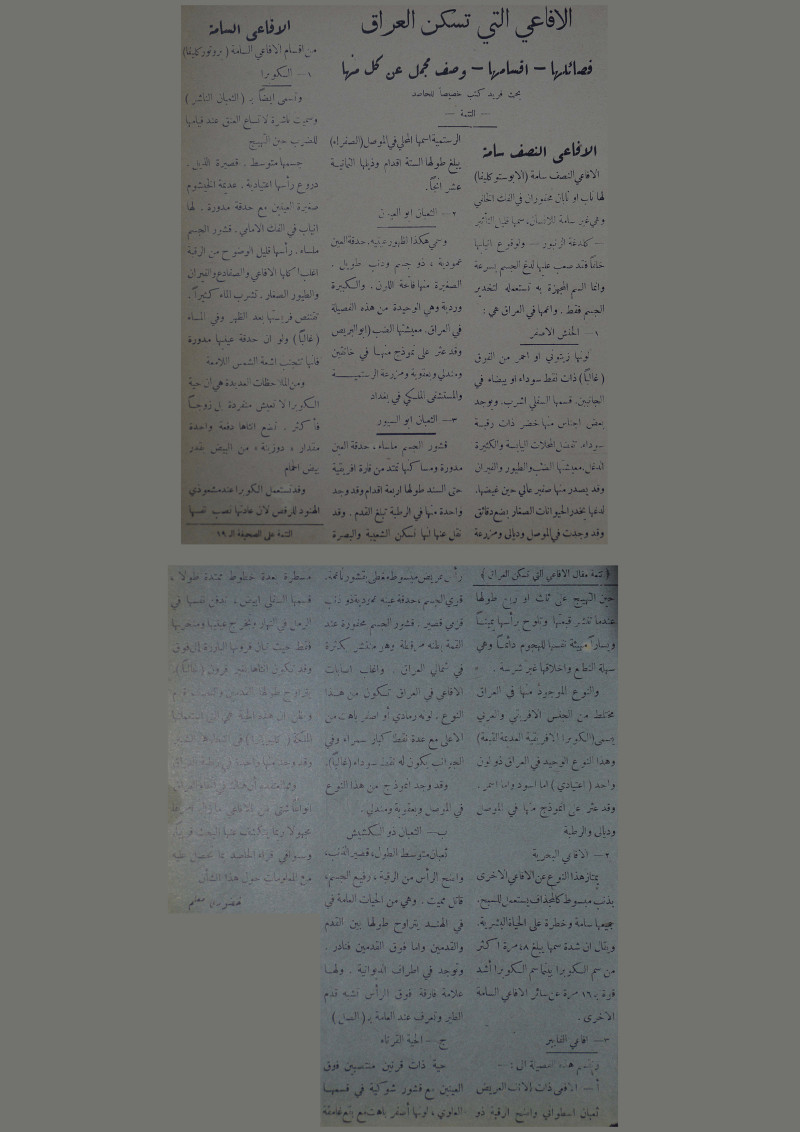 الافاعي التي تسكن العراق
فصائلها — اقسامها — وصف مجمل عن كل منها
بحث فريد كتب خصيصاً للحاصد
— التتمة —
الافاعي النصف سامة
الافاعي النصف سامة (الابوستوكليفا)
لها ناب او نابان محفوران في الفك الخلفي
وهي غير سامة للانسان، سمها قليل التأثير
— كلدغة الزنبور — ولوقوع انيابها
خلفاً فقد صعب عليها لدغ الجسم بسرعة
وانما السم المجهزة به تستعمله لتخدير
الجسم فقط. وانمها في العراق هي :
١— الحنش الاصفر
لونها زيتوني او احمر من الفوق
(غالباً) ذات نقط سوداء او بيضاء في
الجانبين. قسمها السفلي اشرب. وتوجد
بعض اجناس منها خضر ذات رقبة
سوداء. تفضل المحلات اليابسة والكثيرة
الدغل، معيشتها الضب والطيور والفيران
وقد يصدر منها صفير عالي حين غيضها.
لدغها يخدر الحيوانات الصغار بضع دقائق
وقد وجدت في الموصل وديالى ومزرعة
الرستمية اسمها المحلي في الموصل (الصفراء)
يبلغ طولها الستة اقدام وذيلها الثمانية
عشر انجاً.
٢— الثعبان ابو العيون
وسمي هكذا لظهور عينيه. حدقة العين
عمودية، ذو جسم وذنب طويل.
الصغيرة منها فاتحة اللون. والكبيرة
وردية وهي الوحيدة من هذه الفصيلة
في العراق. معيشتها الضب (ابو البريص
وقد عثر على نموذج منها في خانقين
ومندلي وبعقوبة ومزرعة الرستمية
والمستشفى الملكي في بغداد
٣— الثعبان ابو السيور
قشور الجسم ملساء، حدقة العين
مدورة ومساكنها تمتد من قارة افريقية
حتى السند طولها اربعة اقدام وقد وجد
واحدة منها في الرطبة تبلغ القدم. وقد
نقل عنها انها تسكن الشعيبة والبصرة
الافاعي السامة
من اقسام الافاعي السامة (بروتوزكليفا)
١— الكوبرا
وتسمى ايضاً بـ (الثعبان الناشر)
وسميت ناشرة لاتساع العنق عند قيامها
للضرب حين التهييج
جسمها متوسط. قصيرة الذيل.
دروع رأسها اعتيادية. عديمة الخيشوم
صغيرة العينين مع حدقة مدورة. لها
انياب في الفك الامامي. قشور الجسم
ملساء. رأسها قليل الوضوح من الرقبة
اغلب اكلها الافاعي والضفادع والفيران
والطيور الصغار. تشرب الماء كثيراً.
تقتنص فريستها بعد الظهر وفي المساء
(غالباً) ولو ان حدقة عينها مدورة
فانها تتجنب اشعة الشمس اللامعة
ومن الملاحظات العديدة هي ان حية
الكوبرا لا تعيش منفردة بل زوجاً
فأكثر. تضع انثاها دفعة واحدة
مقدار «دوزينة» من البيض بقدر
بيض الحمام
وقد تستعمل الكوبرا عند مشعوذي
الهنود للرقص لان عادتها نصب نفسها
التتمة على الصحيفة الـ ١٩
(تتمة مقال الافاعي التي تسكن العراق)
حين التهييج على ثلث او ربع طولها
عندما تنشر قبعتها وتلوح رأسها يميناً
ويساراً مهيئة نفسها للهجوم دائماً وهي
سهلة التطبع واخلاقها غير شرسة.
والنوع الموجود منها في العراق
مختلط من الجنس الافريقي والعربي
يسمى (الكوبرا الافريقية العديمة القبعة)
وهذا النوع الوحيد في العراق ذو لون
واحد (اعتيادي) اما اسود واما احمر.
وقد عثر عن انموذج منها في الموصل
وديالى والرطبة
٢— الافاعي البحرية
يمتاز هذا النوع عن الافاعي الاخرى
بذنب مبسوط كالمجذاف يستعمل للسبح.
جميعها سامة وخطرة على الحياة البشرية.
ويقال ان شدة سمها يبلغ ٤٨ مرة اكثر
من سم الكوبرا بينما سم الكوبرا أشد
قوة بـ ١٦ مرة عن سائر الافاعي السامة
الاخرى.
٣— افاعي الفايبر
وتنقسم هذه الفصيلة الى :—
أ— الافعى ذات الانف العريض
ثعبان اسطواني واضح الرقبة ذو
رأس عريض مبسوط مغطى بقشور ناعمة.
قوي الجسم، حدقة عينه عمودية ذو ذنب
قرمي قصير. قشور الجسم محفورة عند
القمة بطنه مرقطة وهو منتشر بكثرة
في شمالي العراق. واغلب اصابات
الافاعي في العراق تتكون من هذا
النوع. لونه رمادي أو اصفر باهت من
الاعلى مع عدة نقط كبار سمراء وفي
الجوانب يكون له نقط سوداء (غالباً).
وقد وجد انموذج من هذا النوع
في الموصل وبعقوبة ومندلي.
ب— الثعبان ذو الكشيش
ثعبان متوسط الطول، قصير الذنب،
واضح الرأس من الرقبة، رفيع الجسم،
قاتل مميت. وهي من الحيات العامة في
في الهند يتراوح طولها بين القدم
والقدمين واما فوق القدمين فنادر.
وتوجد في اطراف الديوانية. ولها
علامة فارقة فوق الرأس تشبه قدم
الطير وتعرف عند العامة بـ (الصل)
ج— الحية القرناء
حية ذات قرنين منتصبين فوق
العينين مع قشور شوكية في قسمها
العلوي، لونها أصفر باهت مع بقع غامقة
مسطرة بعدة خطوط ممتدة طولا،
قسمها السفلي ابيض، تدفن نفسها في
الرمل في النهار وتخرج عينيها ومنخريها
فقط حيث تبان قرونها البارزة الى فوق
وقد تكون انثاها بغير قرون (غالباً).
يتراوح طولها القدمين والنصف قدم
الملكة (كليوباترا) في
وقد وجد منها واحدة في
مجهولا ربما ينكشف عليها البحث قريباً.
وسوافي قراء الحاصد بما نحصل عليه
من المعلومات حول هذا الشأن
معلم